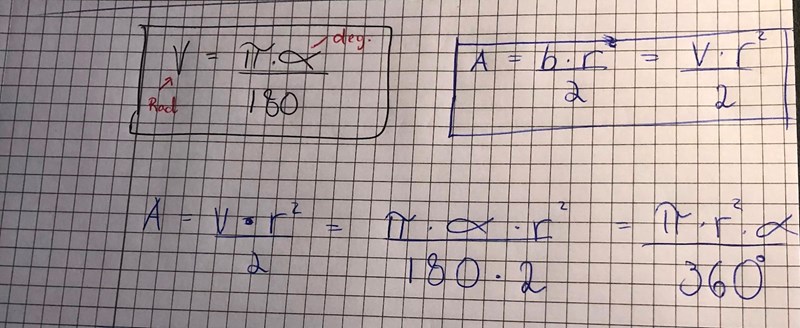 V = π·α / 180
deg.
Rad
A = b·r² / 2 = V·r² / 2
A = V·r² / 2 = π·α·r² / 180·2 = π·r²·α / 360°